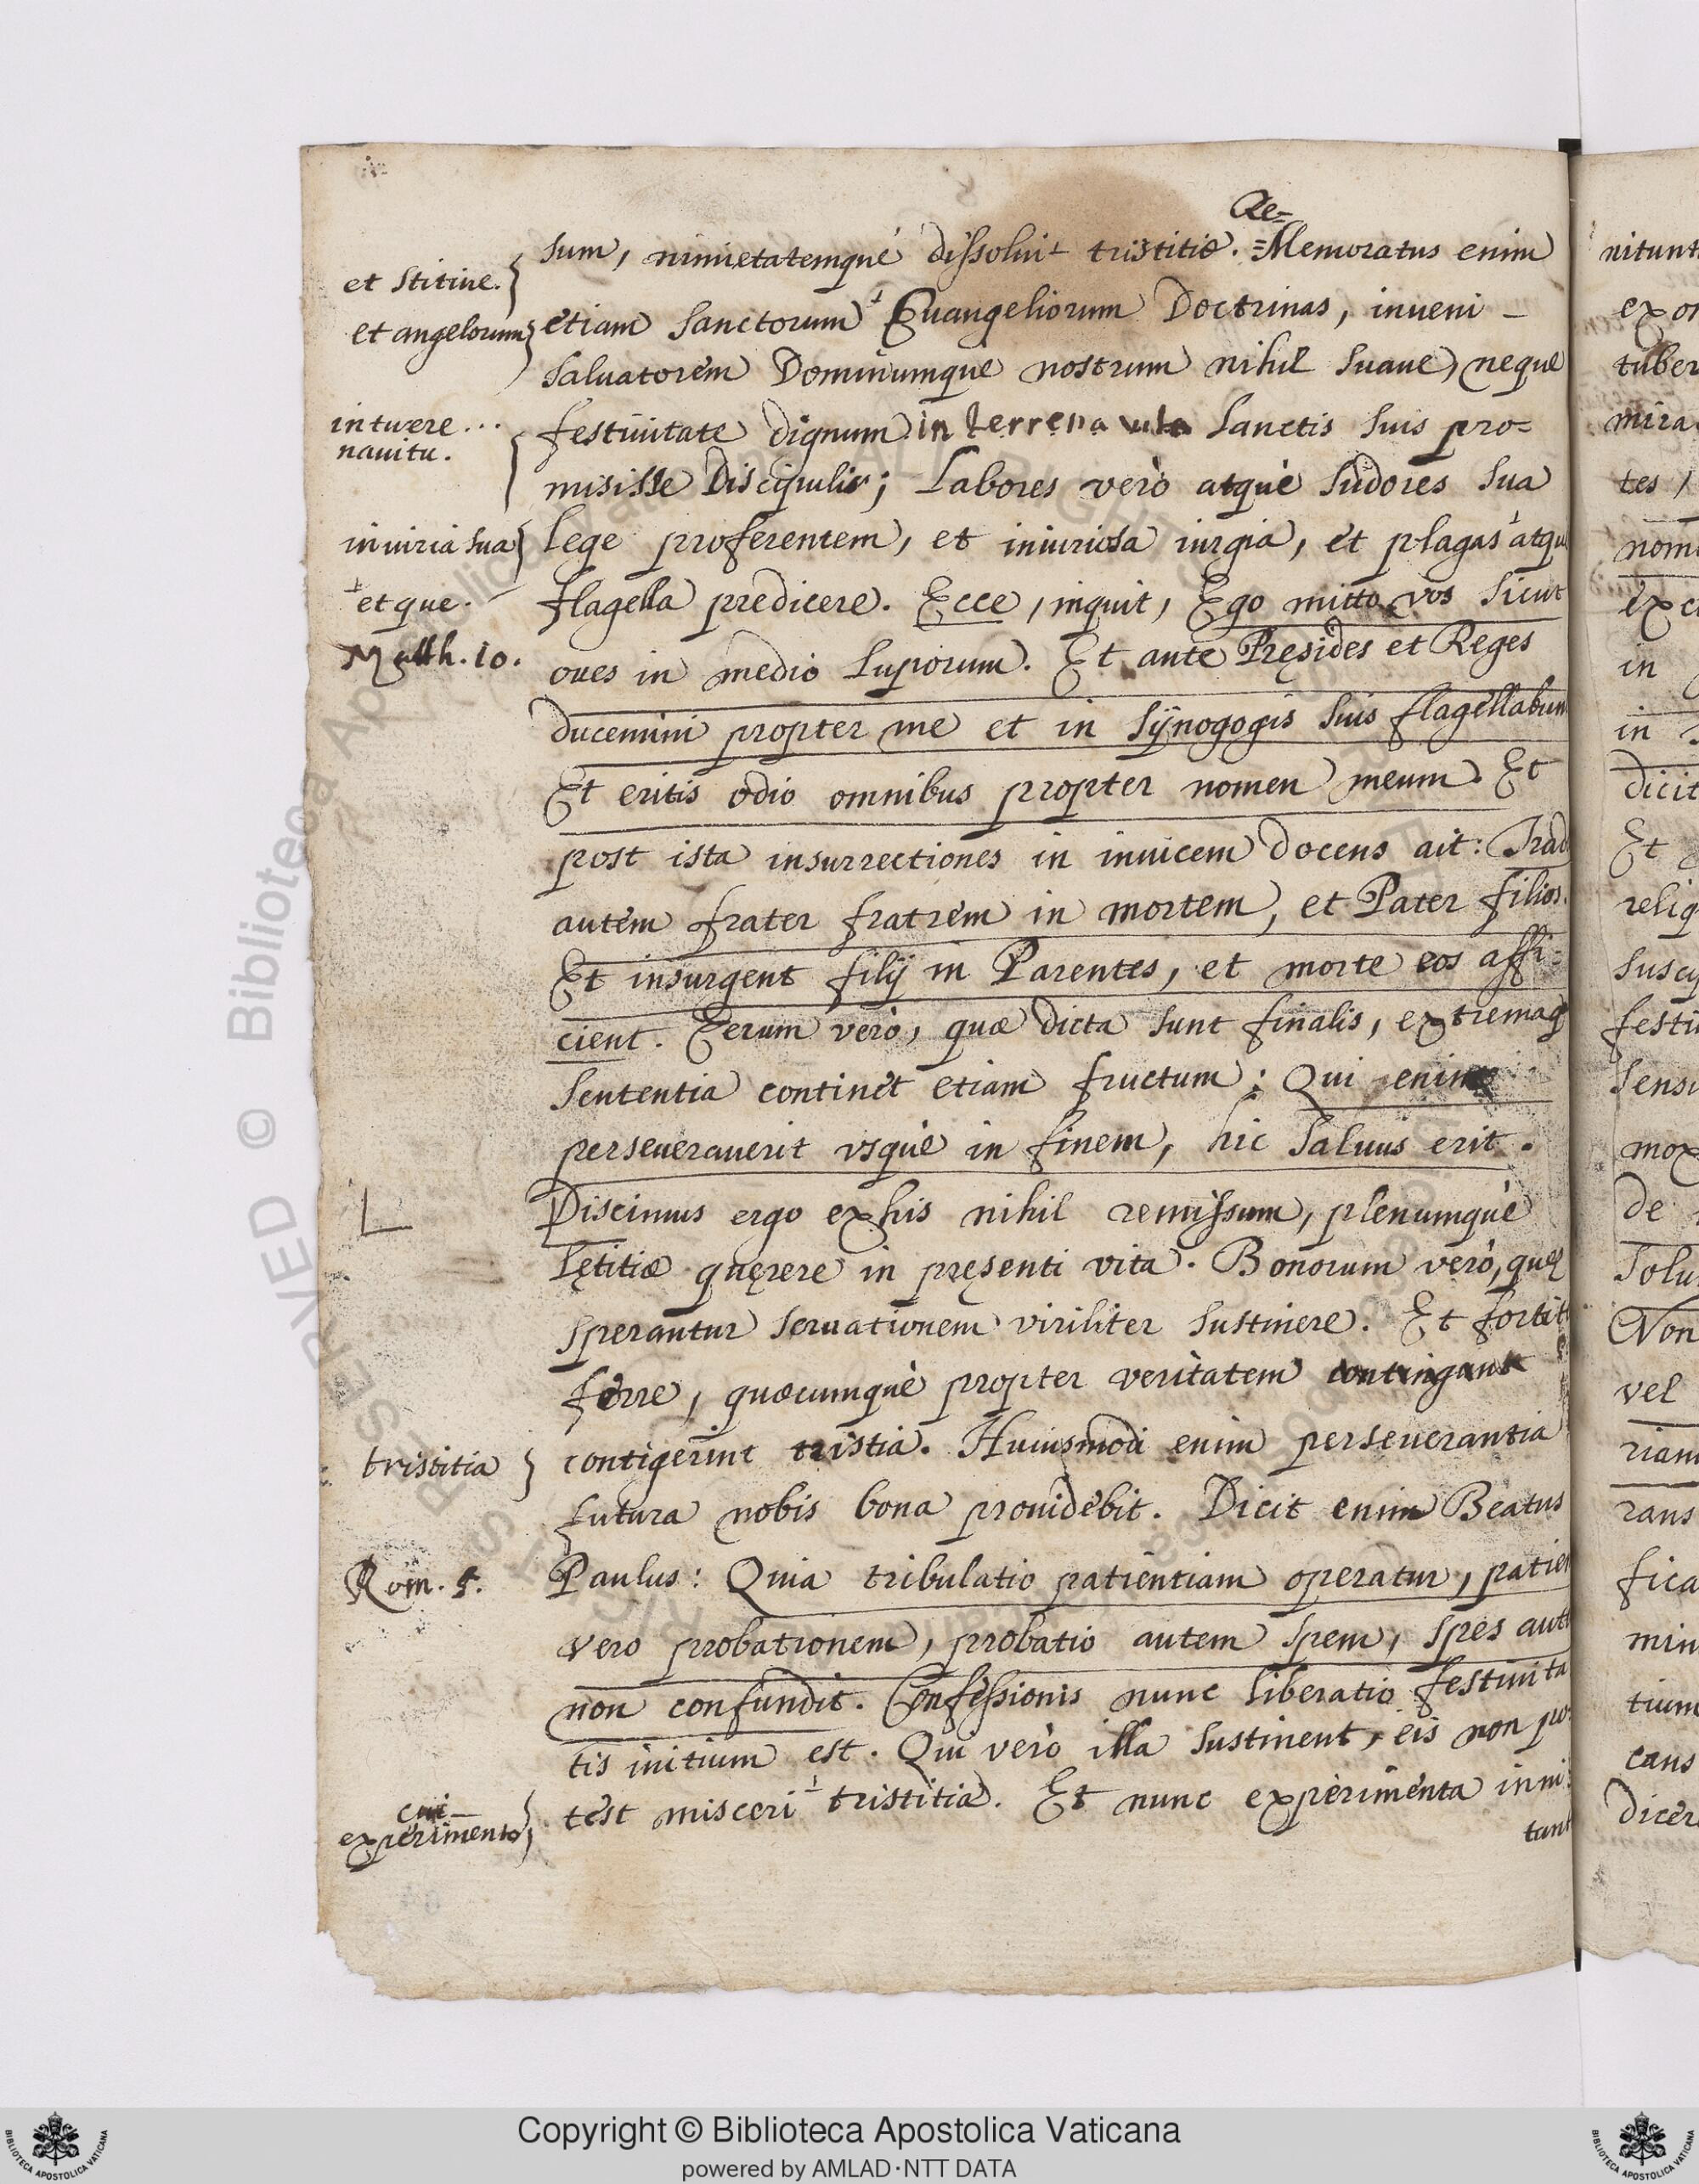 Re=
sum, nimietatemque dissoluit tristitiæ. =Memoratus enim
et stitiue.
etiam sanctorum Euangeliorum Doctrinas, inueni -
et angelorum
saluatorem Dominumque nostrum nihil suaue, neque
festiuitate dignum in terrena vita sanctis suis pro=
intuere...
nauitu.
misisse Discipulis; Labores verò atquè sudores sua
lege proferentem, et iniuriosa iurgia, et plagas atqu
iniuria sua
flagella predicere. Ecce, inquit, Ego mitto vos sicut
et que.
oues in medio Luporum. Et ante Pręsides et Reges
Matth. 10.
ducemini propter me et in Sÿnogogis suis flagellabun
Et eritis odio omnibus propter nomen meum. Et
post ista insurrectiones in inuicem docens ait: Trad
autem frater fratrem in mortem, et Pater filios.
Et insurgent filij in Parentes, et morte eos affi=
cient. Eerum verò, quæ dicta sunt finalis, extremaq
sententia continet etiam fructum: Qui enim
perseuerauerit vsquè in finem, hic saluus erit.
L
Discimus ergo ex his nihil remissum, plenumquè
lętitiæ quęrere in pręsenti vita. Bonorum verò, quę
sperantur seruationem viriliter sustinere. Et fortit
ferre, quæcumquè propter veritatem contingant
contigerint tristia. Huiusmodi enim perseuerantia
tristitia
futura nobis bona prouidebit. Dicit enim Beatus
Paulus: Quia tribulatio patientiam operatur, patien
Rom. 5.
vero probationem, probatio autem spem, spes aute
non confundit. Confessionis nunc liberatio festiuita
tis initium est. Qui verò illa sustinent, eis non po
test misceri tristitia. Et nunc experimenta inni:
cui
experimento
tant
nitunt
exor
tuber
mira
tes /
nomi
exc
in
in
dicit
Et
relig
susci
festi
sensu
mox
de
solu
Non
vel
riam
rans
fica
min
tium
cans
dicer
© Biblioteca Apostolica Vaticana
ALL RIGHTS RESERVED
Copyright © Biblioteca Apostolica Vaticana
powered by AMLAD·NTT DATA
BIBLIOTECA APOSTOLICA VATICANA
BIBLIOTECA APOSTOLICA VATICANA